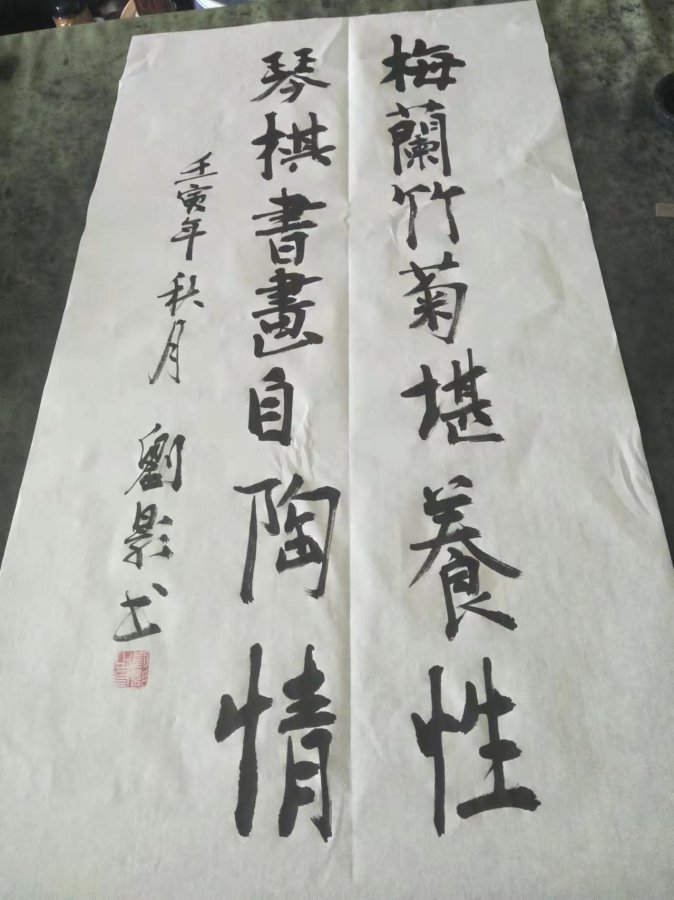 梅蘭竹菊堪養性
琴棋書畫自陶情
壬寅年秋月
劉影书